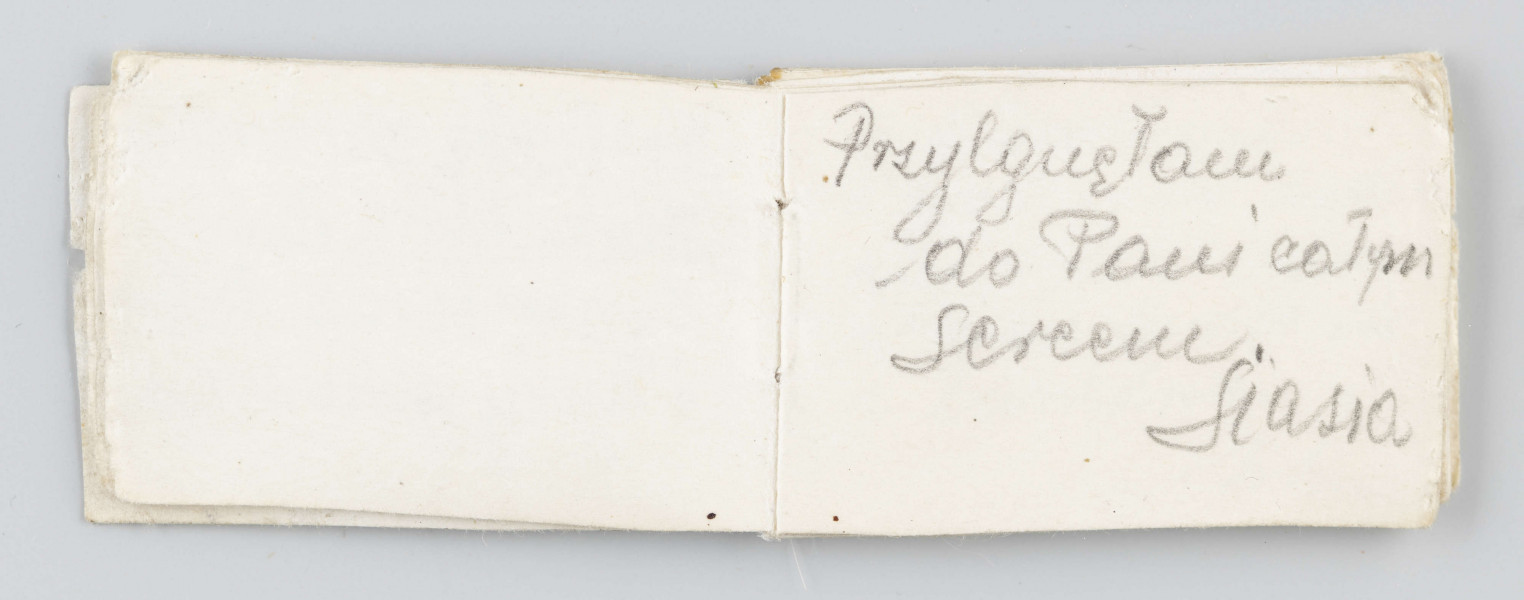 Przylgnęłam
do Pani całym
sercem.
Siasia